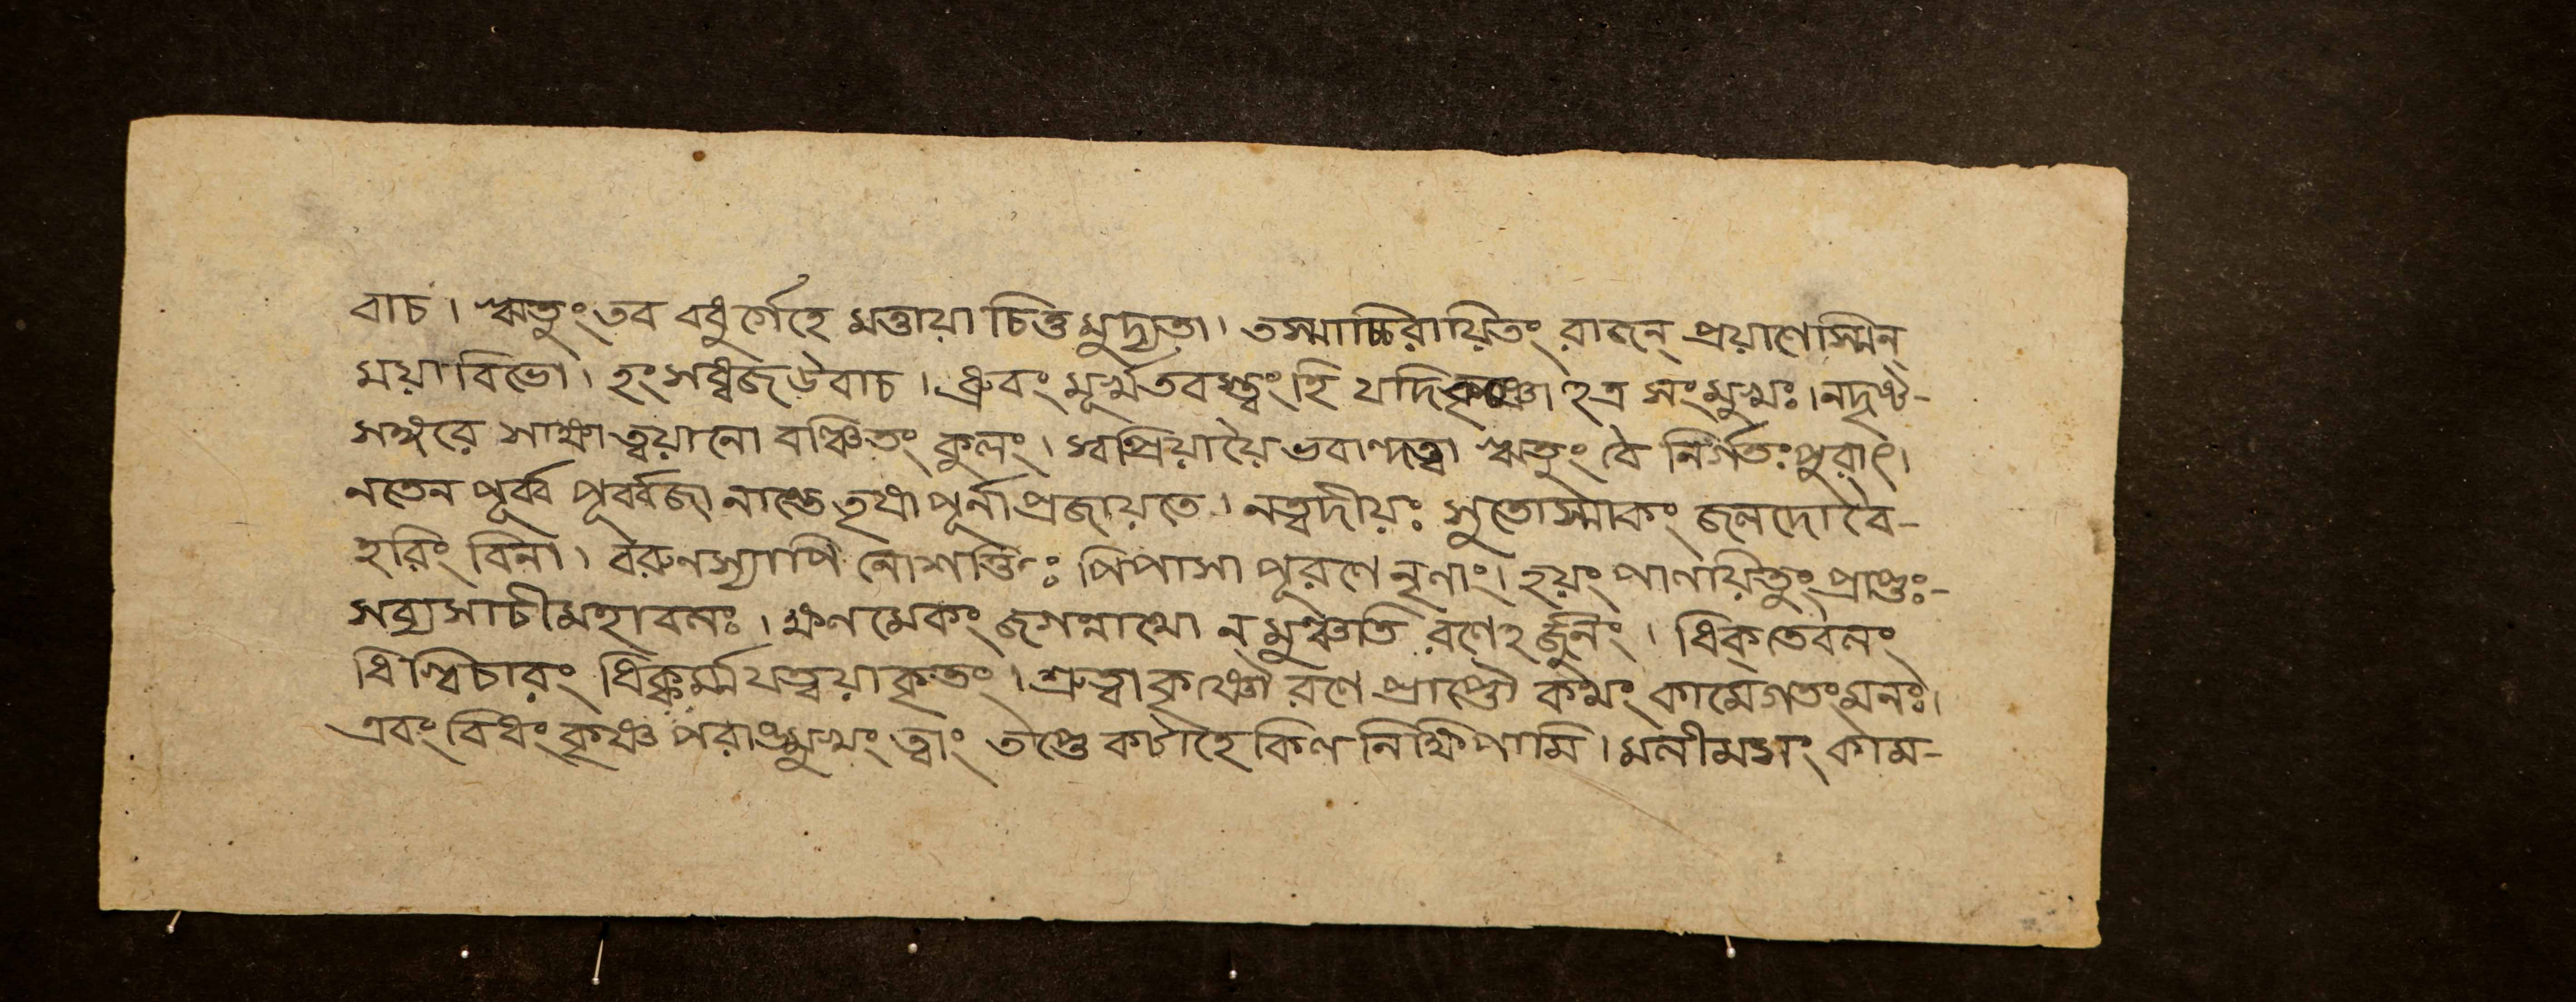 বাচ। ঋতুং তব বধুর্গেহে মত্তায়া চিত্তমুদ্যতা। তস্মাচ্চিরায়িতং রাজন্ প্রয়াণেস্মিন্
ময়া বিভো। হংসধ্বজ উবাচ। ধ্রুবং মূর্খতবস্ত্বংহি যদি কৃষ্ণো হত্র সংমুখঃ। নদৃষ্ট-
সঙ্গরে সাক্ষাত্ত্বয়ানো বঞ্চিতং কুলং। স্বপ্রিয়ায়ৈ ভবান্দত্বা ঋতুং বৈ নির্গতঃ পুরাৎ।
নতেন পূর্ব্ব পূর্ব্বজানাং তৃষা পূর্না প্রজায়তে। নত্বদীয়ঃ সুতোস্মাকং জলদো বৈ-
হরিং বিনা। বরুনস্যাপি নোশক্তিঃ পিপাসা পূরণে নৃনাং। হয়ং পালয়িতুং প্রাপ্তঃ-
সব্যসাচী মহাবলঃ। ক্ষণমেকং জগন্নাথো ন মুঞ্চতি রণেহর্জুনং। ধিক্ তেবলং
ধিগ্বিচারং ধিক্কর্ম্ম যত্ত্বয়া কৃতং। শ্রুত্বা কৃষ্ণৌ রণে প্রাপ্তৌ কথং কামেগতংমনঃ।
এবং বিধং কৃষ্ণ পরাঙ্মুখং ত্বাং তপ্তে কটাহে কিল নিক্ষিপামি। মলীমসং কাম-